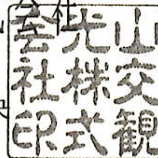 山交観
光株式
会社印